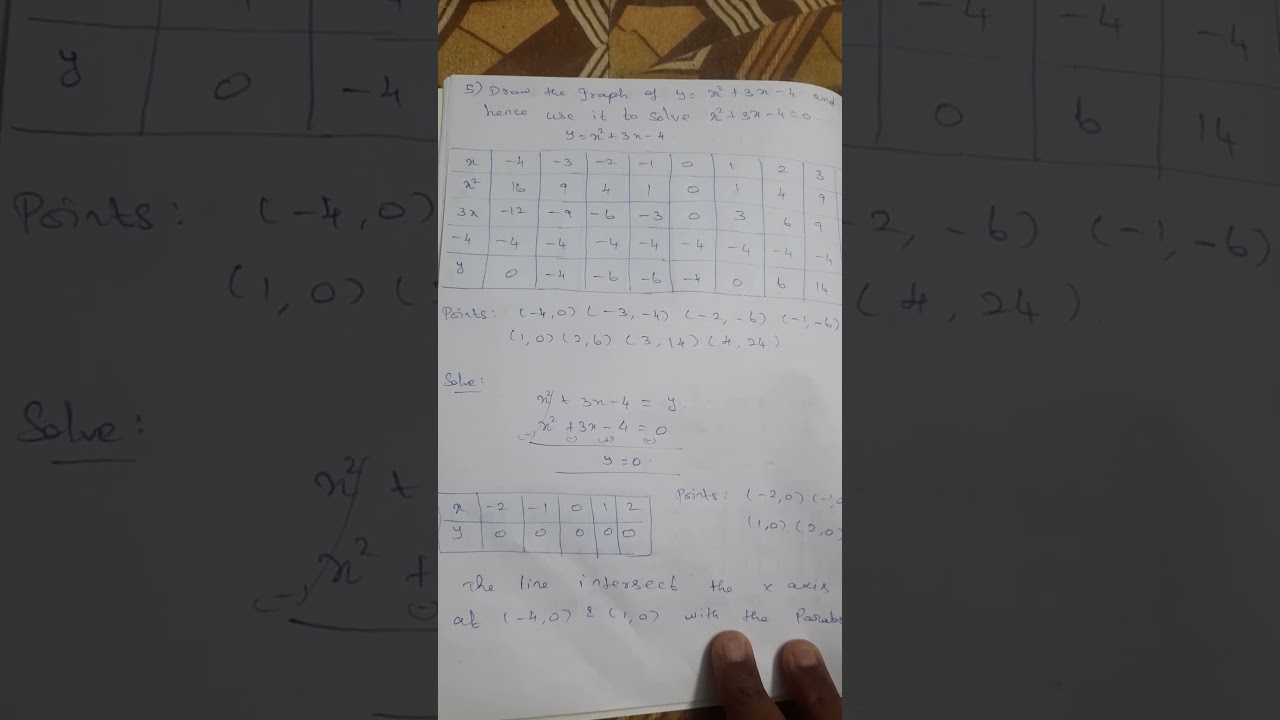 5) Draw the graph of y = x² + 3x - 4 and
hence use it to solve x² + 3x - 4 = 0.
y = x² + 3x - 4.
x -4 -3 -2 -1 0 1 2 3
x² 16 9 4 1 0 1 4 9
3x -12 -9 -6 -3 0 3 6 9
-4 -4 -4 -4 -4 -4 -4 -4 -4
y 0 -4 -6 -6 -4 0 6 14
Points: (-4, 0) (-3, -4) (-2, -6) (-1, -6)
(1, 0) (2, 6) (3, 14) (4, 24)
Solve:
x² + 3x - 4 = y.
x² + 3x - 4 = 0
(-) (-) (+) (-)
y = 0.
x -2 -1 0 1 2
y 0 0 0 0 0
Points: (-2, 0) (-1, 0
(1, 0) (2, 0)
The line intersect the x axis
at (-4, 0) & (1, 0) with the